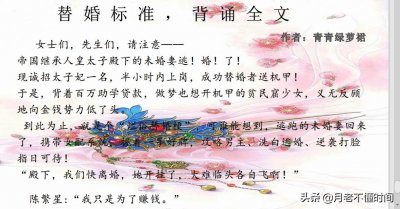 替 婚 标 准 ， 背 诵 全 文
作者：青青绿萝裙
女士们，先生们，请注意——
帝国继承人皇太子殿下的未婚妻逃！婚！了！
现诚招太子妃一名，半小时内上岗，成功替婚者送机甲！
于是，背着百万助学贷款，做梦也想开机甲的贫民窟少女，义无反顾
地向金钱势力低了头
到此为止，就
能想到，逃跑的未婚妻回来
了，携带女配系统，
攻略男主、洗白逃婚、逆袭打脸
指日可待！
“殿下，我们快离婚，她开挂了，大难临头各自飞啊！”
陈繁星：“我只是为了赚钱。”
头条 @月老不懂时间